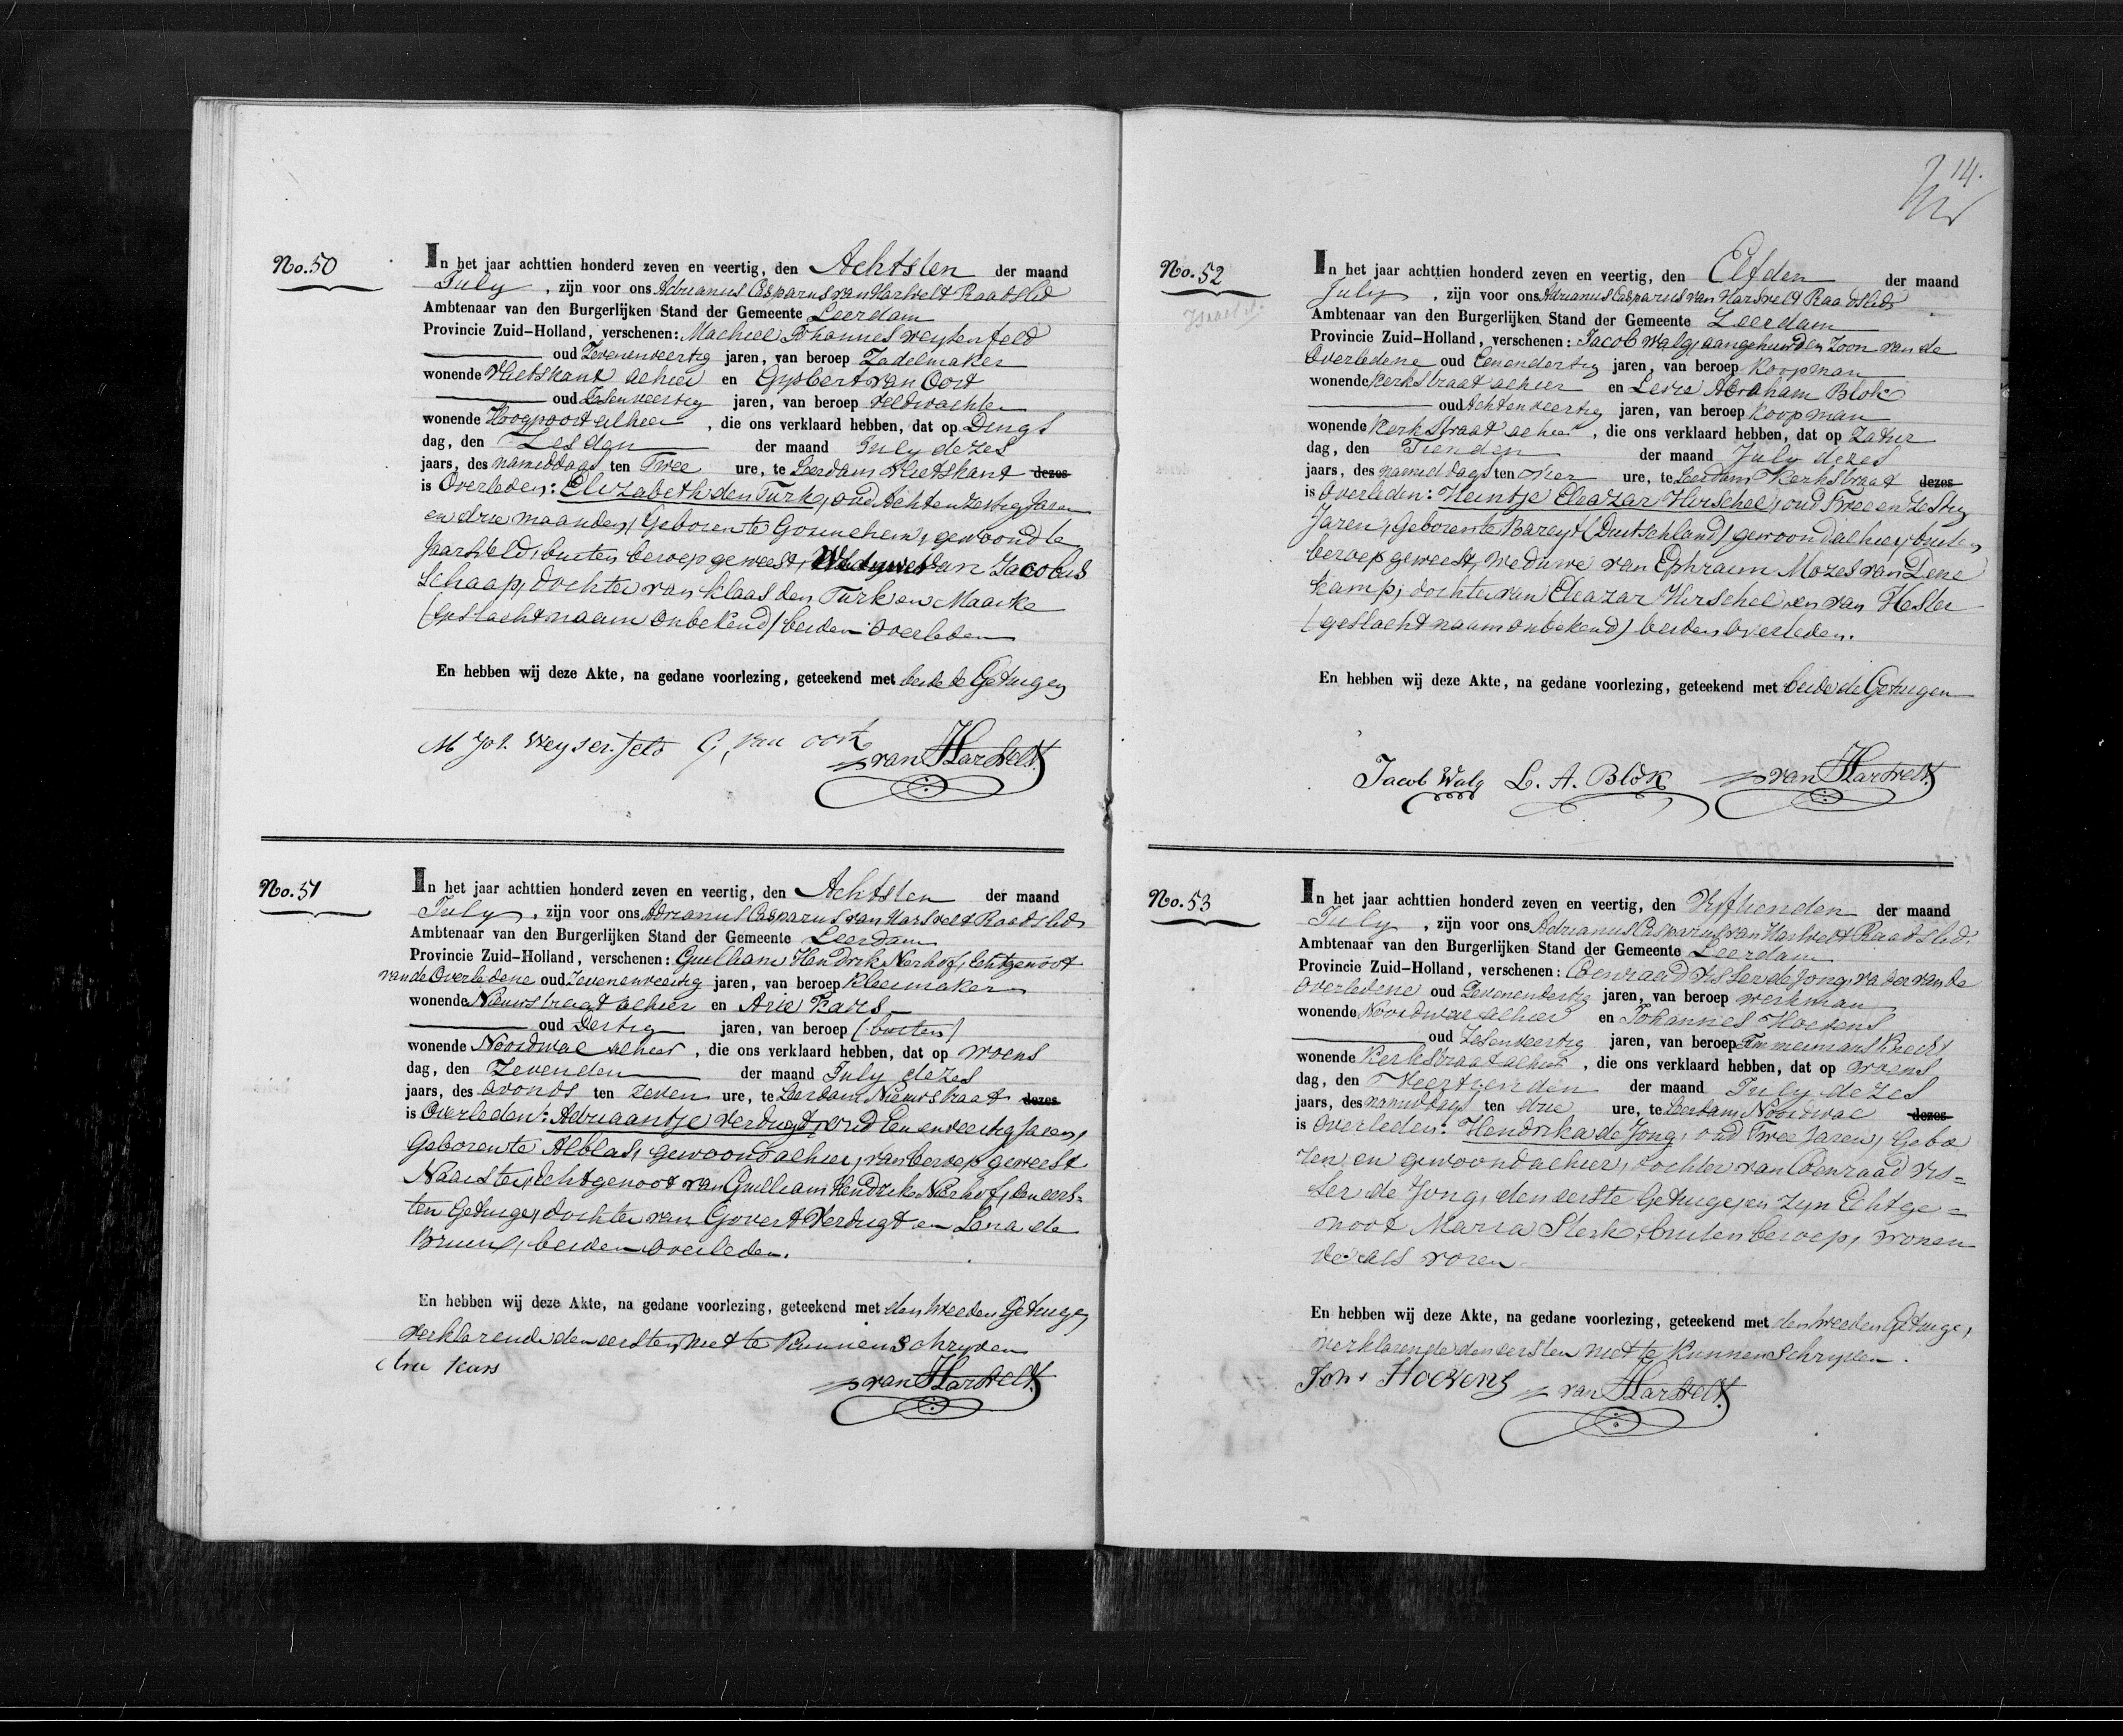 No. 50
In het jaar achttien honderd zeven en veertig, den Achtsten der maand
July, zijn voor ons Adrianus Casparus van Hartvelt Raadslid
Ambtenaar van den Burgerlijken Stand der Gemeente Leerdam
Provincie Zuid-Holland, verschenen: Machiel Johannes Weytenfeld
oud Zevenenveertig jaren, van beroep Zadelmaker
wonende Vlietskant alhier en Gysbert van Oort
oud Zesenveertig jaren, van beroep Veldwachter
wonende Hoogpoort alhier, die ons verklaard hebben, dat op Dings
dag, den Zesden der maand July dezes
jaars, des namiddags ten Twee ure, te Leerdam Vlietskant dezes
is Overleden: Elizabeth den Turk, oud Achtenzestig Jaren
en drie maanden, Geboren te Gorinchem, gewoond te
Jaarsveld, buiten beroep geweest, Weduwe van Jacobus
Schaap, dochter van Klaas den Turk en Maaike
(geslachtnaam onbekend) beiden overleden
En hebben wij deze Akte, na gedane voorlezing, geteekend met beide de Getuigen
M Joh. Weyterfeld G, van oort
van Hartvelt
No. 51
In het jaar achttien honderd zeven en veertig, den Achtsten der maand
July, zijn voor ons Adrianus Casparus van Hartvelt Raadslid
Ambtenaar van den Burgerlijken Stand der Gemeente Leerdam
Provincie Zuid-Holland, verschenen: Guilliam Hendrik Nerhof, Echtgenoot
van de Overledene oud Zevenenveertig jaren, van beroep Kleermaker
wonende Nieuwstraat alhier en Arie Kars
oud Dertig jaren, van beroep (buiten)
wonende Noordwal alhier, die ons verklaard hebben, dat op Woens
dag, den Zevenden der maand July dezes
jaars, des avonds ten zeven ure, te Leerdam Nieuwstraat dezes
is Overleden: Adriaantje Verdugt, oud Een en veertig Jaren,
Geboren te Alblas, gewoond alhier, van beroep geweest
Naaister, Echtgenoot van Guilliam Hendrik Nerhof, den eers=
ten Getuige, dochter van Govert Verdugt en Lena de
Bruin, beiden overleden.
En hebben wij deze Akte, na gedane voorlezing, geteekend met den tweeden Getuige,
verklarende den eersten, niet te kunnen schryven
Arie Kars
van Hartvelt
14.
No. 52
In het jaar achttien honderd zeven en veertig, den Elfden der maand
July, zijn voor ons Adrianus Casparus van Hartvelt Raadslid
Ambtenaar van den Burgerlijken Stand der Gemeente Leerdam
Provincie Zuid-Holland, verschenen: Jacob Walg, aangehuwden Zoon van de
Overledene oud Eenendertig jaren, van beroep Koopman
wonende Kerkstraat alhier en Levie Abraham Blok
oud Achtenveertig jaren, van beroep Koopman
wonende Kerkstraat alhier, die ons verklaard hebben, dat op Zatur
dag, den Tienden der maand July dezes
jaars, des namiddags ten vier ure, te Leerdam Kerkstraat dezes
is Overleden: Heintje Eleazar Herschel, oud Twee en Zestig
Jaren, Geboren te Bareyt (Duitschland) gewoond alhier, buiten
beroep geweest, weduwe van Ephraim Mozes van Dene
kamp, dochter van Eleazar Herschel en van Hester
(geslachtnaam onbekend) beiden overleden.
En hebben wij deze Akte, na gedane voorlezing, geteekend met beide de Getuigen
Jacob Walg L. A. Blok van Hartvelt
No. 53
In het jaar achttien honderd zeven en veertig, den Vyftienden der maand
July, zijn voor ons Adrianus Casparus van Hartvelt Raadslid.
Ambtenaar van den Burgerlijken Stand der Gemeente Leerdam
Provincie Zuid-Holland, verschenen: Coenraad Visser de Jong, vader van de
Overledene oud Zevenendertig jaren, van beroep werkman
wonende Noordwal alhier en Johannes Hoevens
oud Zesenveertig jaren, van beroep Timmermans Knecht
wonende Kerkstraat alhier, die ons verklaard hebben, dat op Woens
dag, den Veertienden der maand July dezes
jaars, des namiddags ten drie ure, te Leerdam Noordwal dezes
is Overleden: Hendrika de Jong, oud Twee Jaren, Gebo
ren en gewoond alhier, dochter van Coenraad Vis=
ser de Jong, den eerste Getuige, en zyn Echtge=
noot Maria Sterk, buiten beroep, wonen
de als voren
En hebben wij deze Akte, na gedane voorlezing, geteekend met den tweeden Getuige,
verklarende den eersten niet te kunnen Schryven.
Joh. Hoevens van Hartvelt